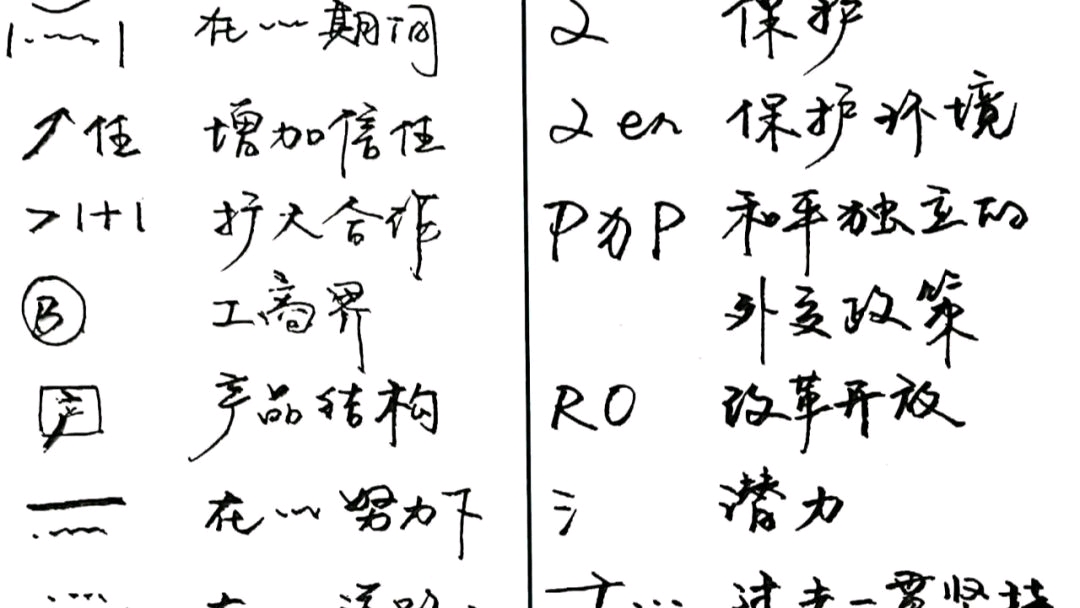 |.﹏| 在…期间
↗任 增加信任
>1+1 扩大合作
Ⓑ 工商界
产 产品结构
在…努力下
2 保护
2 en 保护环境
P为P 和平独立的
外交政策
RO 改革开放
氵 潜力